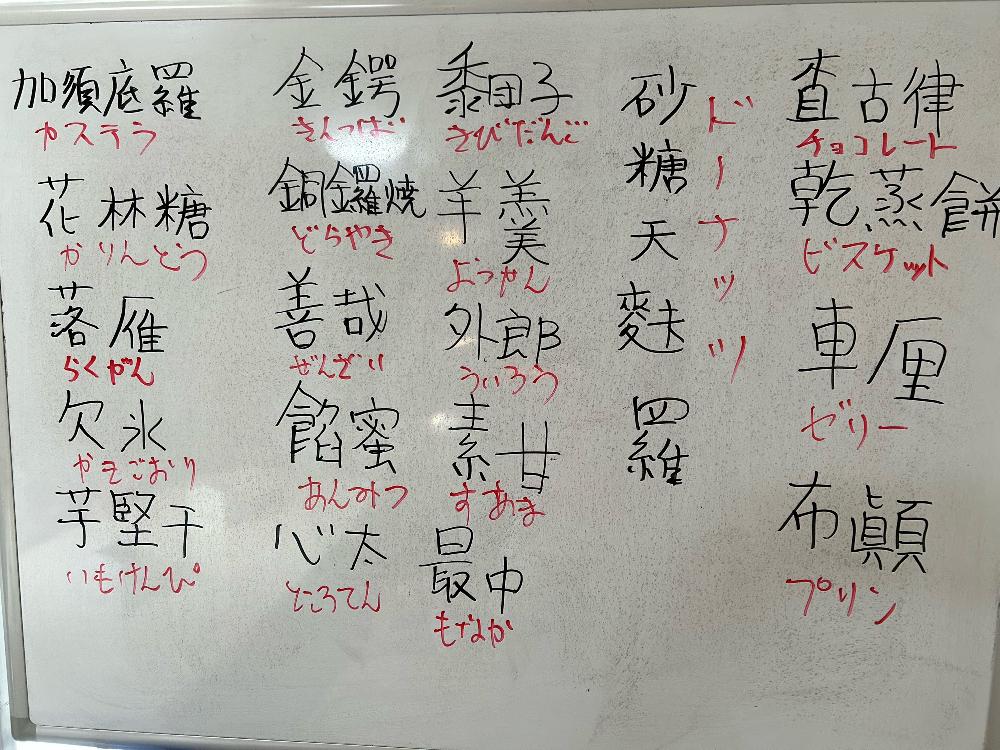 加須底羅
カステラ
花林糖
かりんとう
落雁
らくがん
欠氷
かきごおり
芋堅干
いもけんぴ
金鍔
きんつば
銅鑼焼
どらやき
善哉
ぜんざい
餡蜜
あんみつ
心太
ところてん
黍団子
きびだんご
羊羹
ようかん
外郎
ういろう
素甘
すあま
最中
もなか
砂糖天麩羅
ドーナッツ
査古律
チョコレート
乾蒸餅
ビスケット
車厘
ゼリー
布顛
プリン